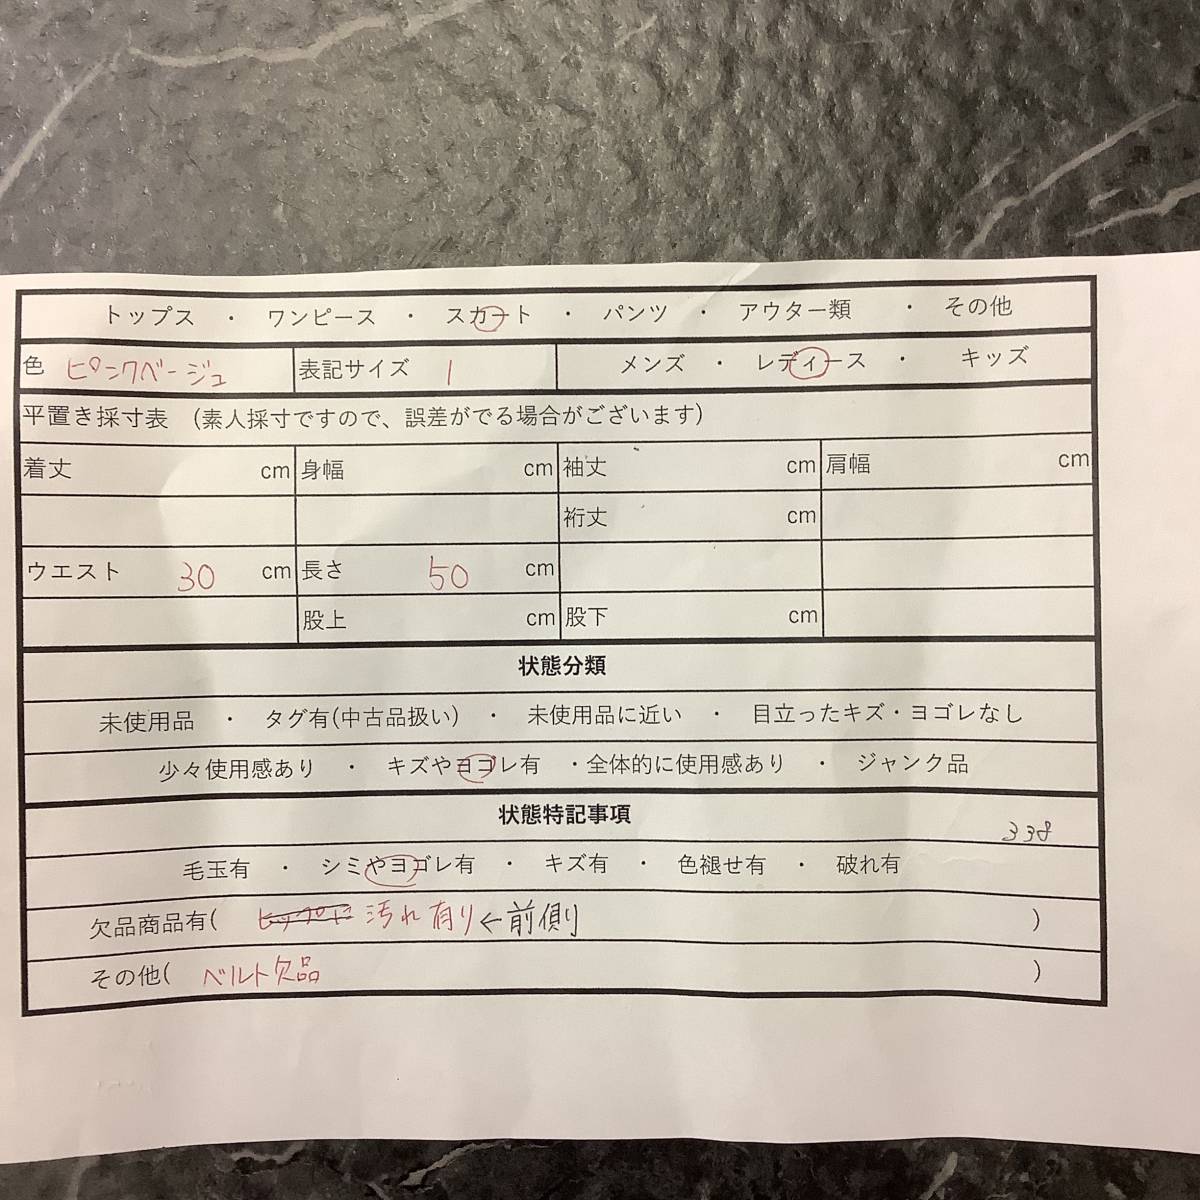 トップス ・ ワンピース ・ スカート ・ パンツ ・ アウター類 ・ その他
色 ピンクベージュ 表記サイズ 1 メンズ ・ レディース ・ キッズ
平置き採寸表 (素人採寸ですので、誤差がでる場合がございます)
着丈 cm 身幅 cm 袖丈 cm 肩幅 cm
裄丈 cm
ウエスト 30 cm 長さ 50 cm
股上 cm 股下 cm
状態分類
未使用品 ・ タグ有(中古品扱い) ・ 未使用品に近い ・ 目立ったキズ・ヨゴレなし
少々使用感あり ・ キズやヨゴレ有 ・全体的に使用感あり ・ ジャンク品
状態特記事項
338
毛玉有 ・ シミやヨゴレ有 ・ キズ有 ・ 色褪せ有 ・ 破れ有
欠品商品有( ヒップに 汚れ有り←前側 )
その他( ベルト欠品 )